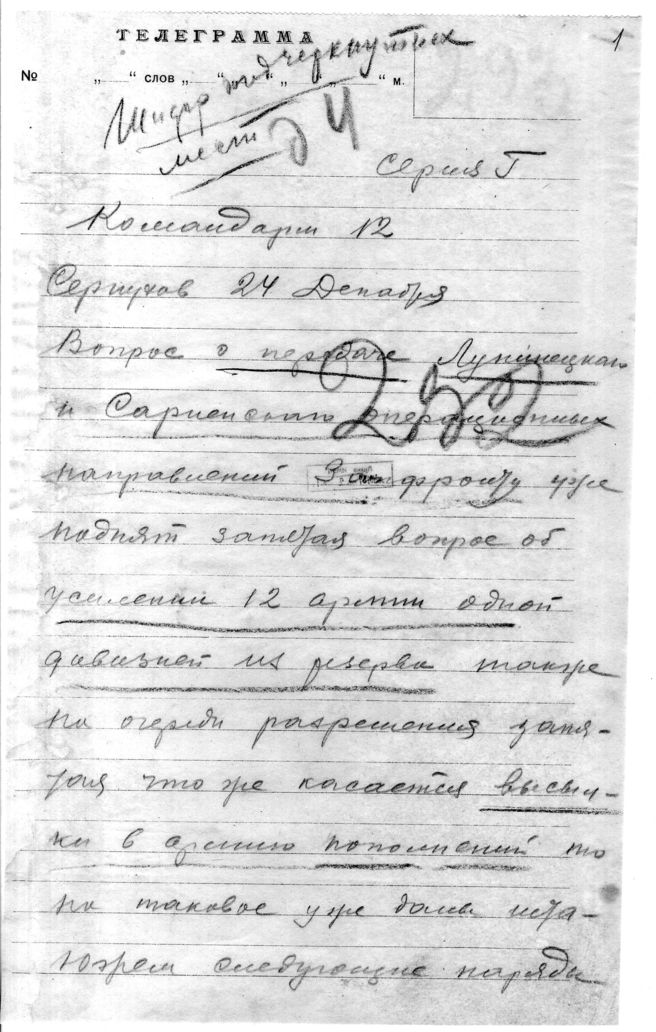 ТЕЛЕГРАММА
1
№ „ “ слов „ “ „ “ м.
Шифр подчеркнутых
мест
Серия Г
Командарм 12
Серпухов 24 Декабря
Вопрос о передаче Лунинецкого
и Сарненского операционных
направлений Запфронту уже
поднят запятая вопрос об
усилении 12 армии одной
дивизией из резерва также
на очереди разрешения запя-
тая что же касается высыл-
ки в армию пополнений то
на таковое уже даны
следующие наряды